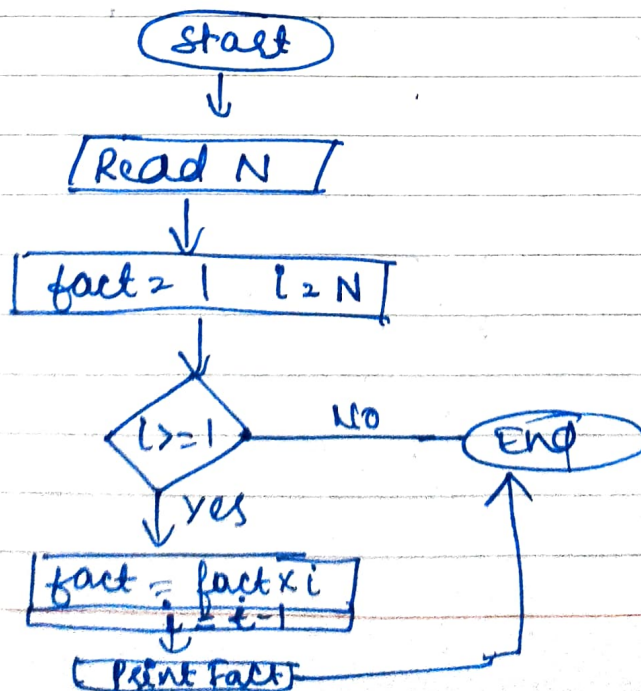 Start
Read N
fact = 1 i = N
i>=1
No
End
Yes
fact = fact x i
i = i-1
Print Fact